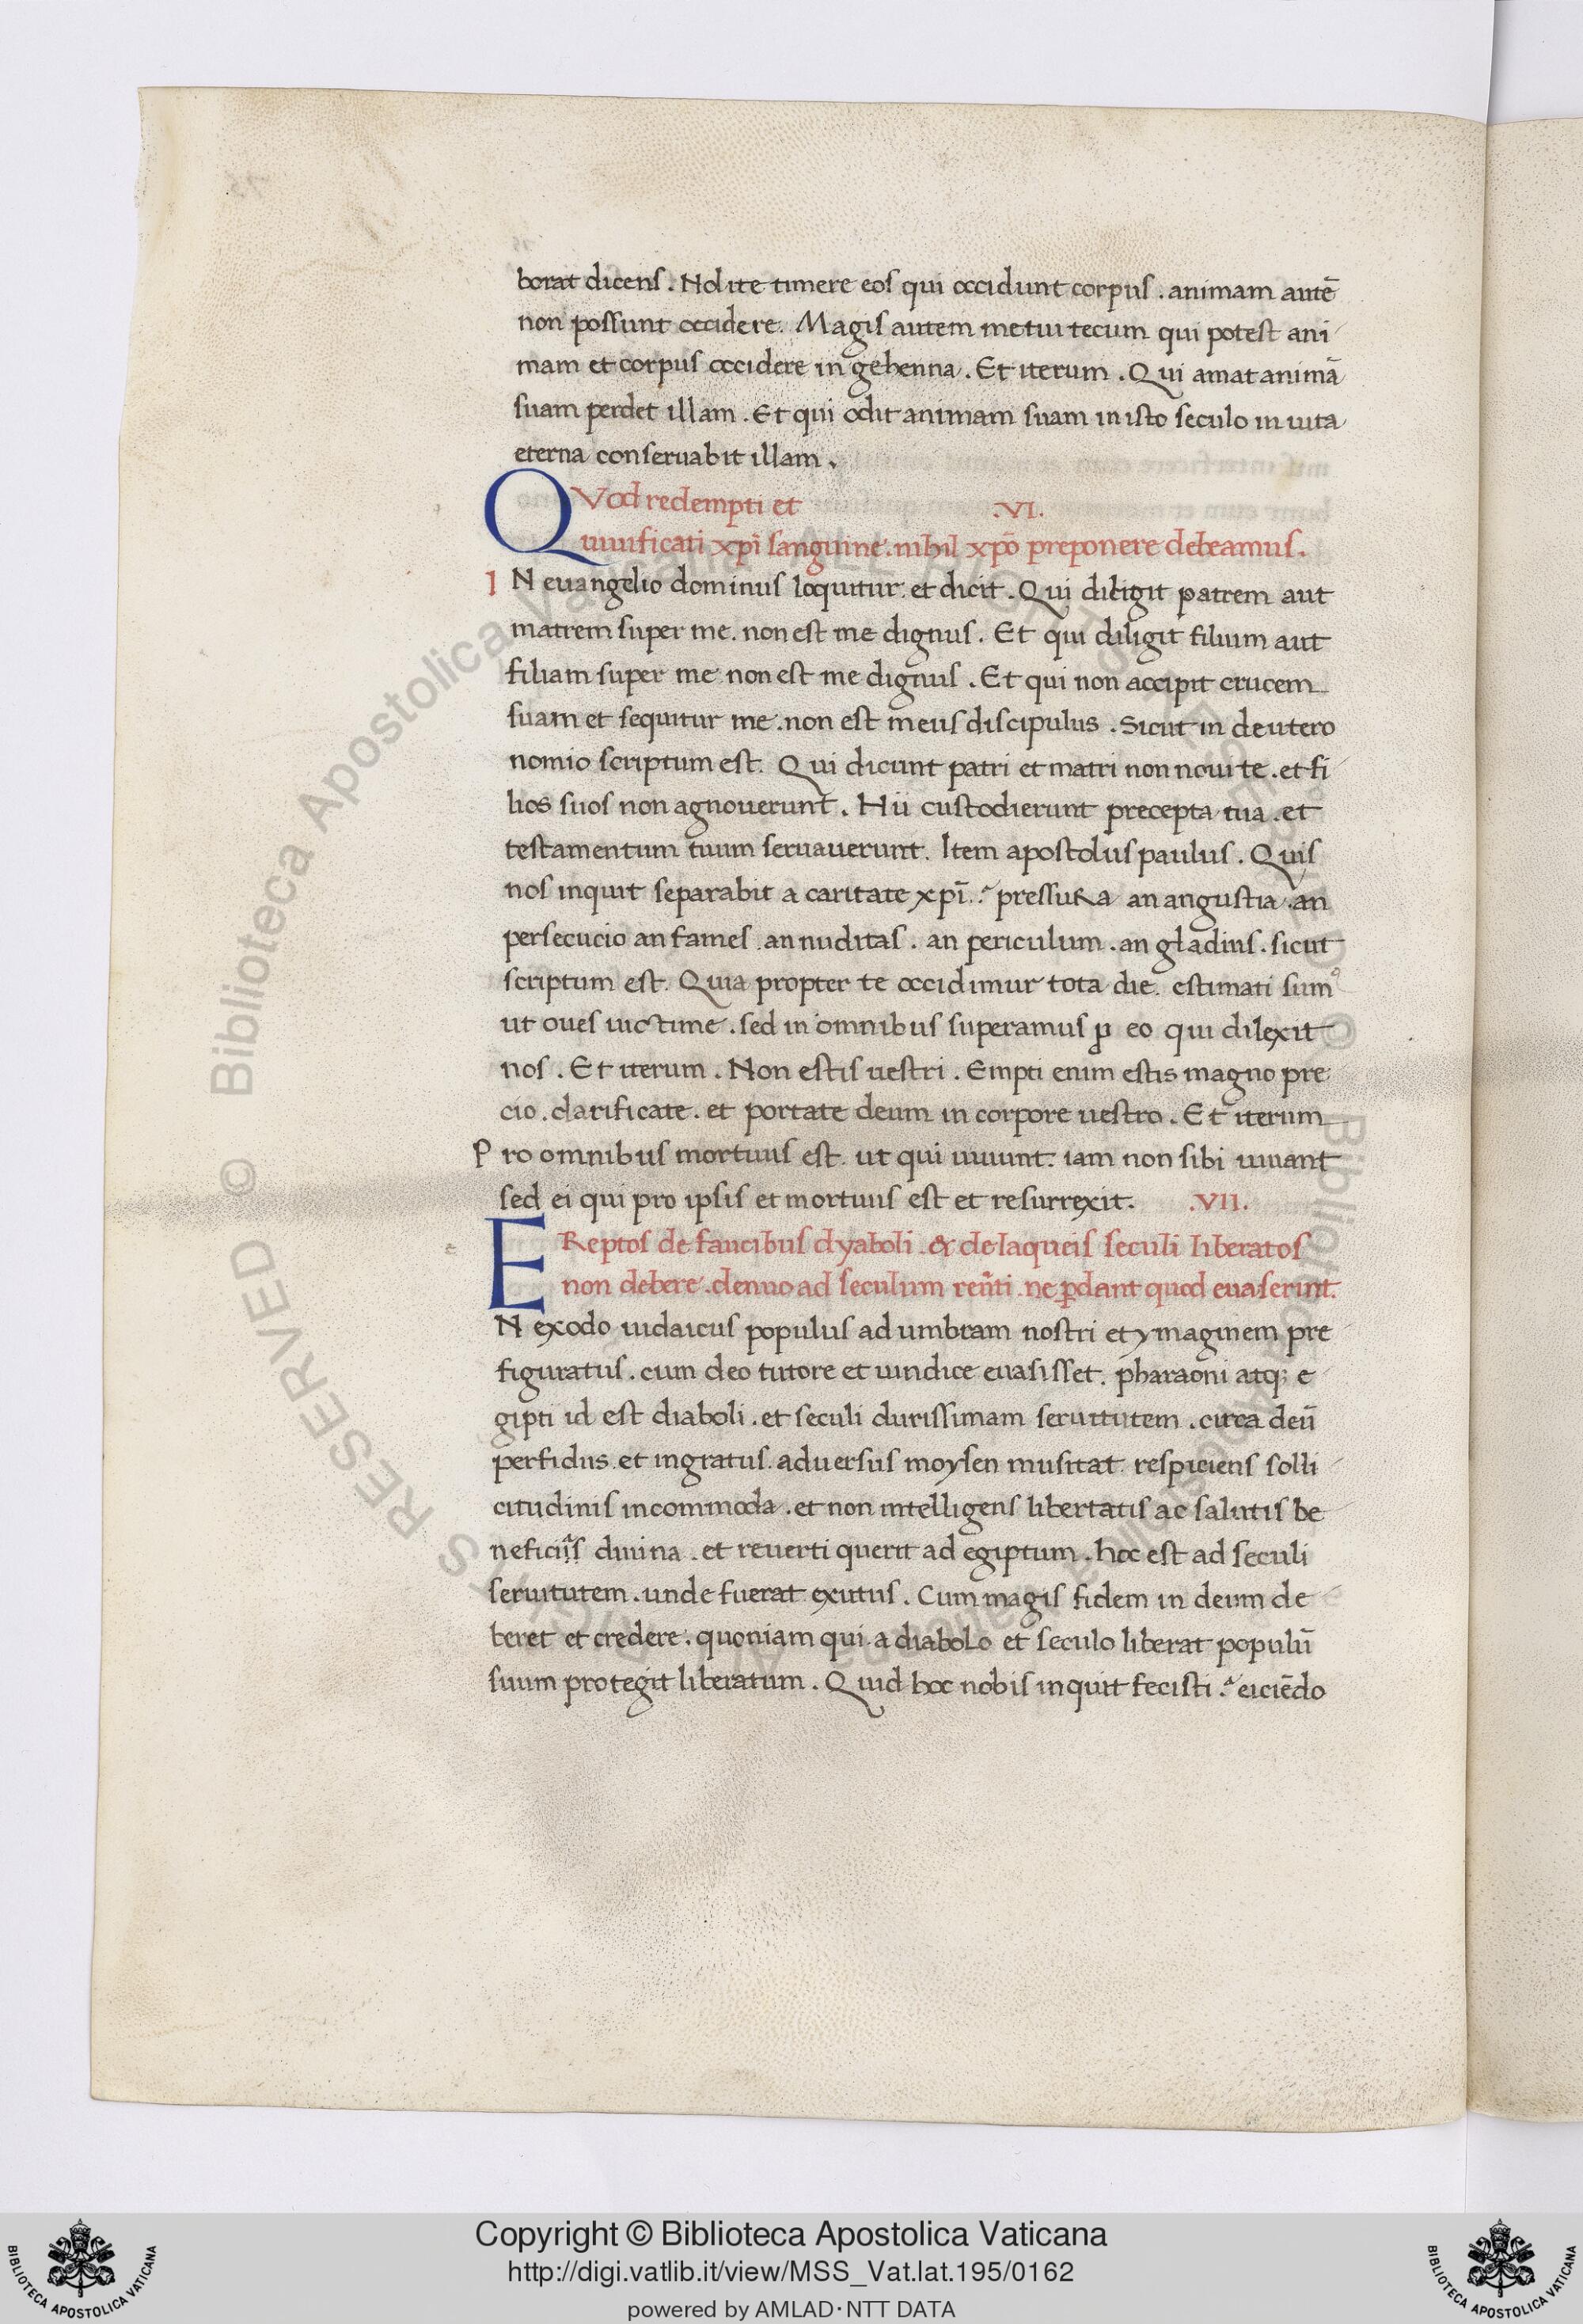 borat dicens . Nolite timere eos qui occidunt corpus . animam autē
non possunt occidere . Magis autem metui tecum qui potest ani
mam et corpus occidere in gehenna . Et iterum . Qui amat animā
suam perdet illam . Et qui odit animam suam in isto seculo in uita
eterna conseruabit illam .
QVod redempti et .VI.
uiuificati xp̄i sanguine . nihil xp̄o preponere debeamus .
IN euangelio dominus loquitur et dicit . Qui diligit patrem aut
matrem super me . non est me dignus . Et qui diligit filium aut
filiam super me non est me dignus . Et qui non accipit crucem
suam et sequitur me . non est meus discipulus . Sicut in deutero
nomio scriptum est . Qui dicunt patri et matri non noui te . et fi
lios suos non agnouerunt . Hii custodierunt precepta tua . et
testamentum tuum seruauerunt . Item apostolus paulus . Quis
nos inquit separabit a caritate xp̄i .? pressura an angustia . an
persecucio an fames . an nuditas . an periculum . an gladius . sicut
scriptum est . Quia propter te occidimur tota die . estimati sumꝰ
ut oues uictime . sed in omnibus superamus ꝓ eo qui dilexit
nos . Et iterum . Non estis uestri . Empti enim estis magno pre
cio . clarificate . et portate deum in corpore uestro . Et iterum
Pro omnibus mortuus est . ut qui uiuunt . iam non sibi uiuant
sed ei qui pro ipsis et mortuus est et resurrexit . .VII.
EReptos de faucibus dyaboli . & de laqueis seculi liberatos
non debere . denuo ad seculum reūti . ne ꝑdant quod euaserint .
N exodo iudaicus populus ad umbram nostri et ymaginem pre
figuratus . cum deo tutore et uindice euasisset . pharaoni atq; e
gipti id est diaboli . et seculi durissimam seruitutem . circa deū
perfidus . et ingratus . aduersus moysen musitat respiciens solli
citudinis incommoda . et non intelligens libertatis ac salutis be
neficiis diuina . et reuerti querit ad egiptum . hoc est ad seculi
seruitutem . unde fuerat exutus . Cum magis fidem in deum de
beret et credere . quoniam qui a diabolo et seculo liberat populū
suum protegit liberatum . Quid hoc nobis inquit fecisti .? eiciēdo
Copyright © Biblioteca Apostolica Vaticana
http://digi.vatlib.it/view/MSS_Vat.lat.195/0162
powered by AMLAD·NTT DATA